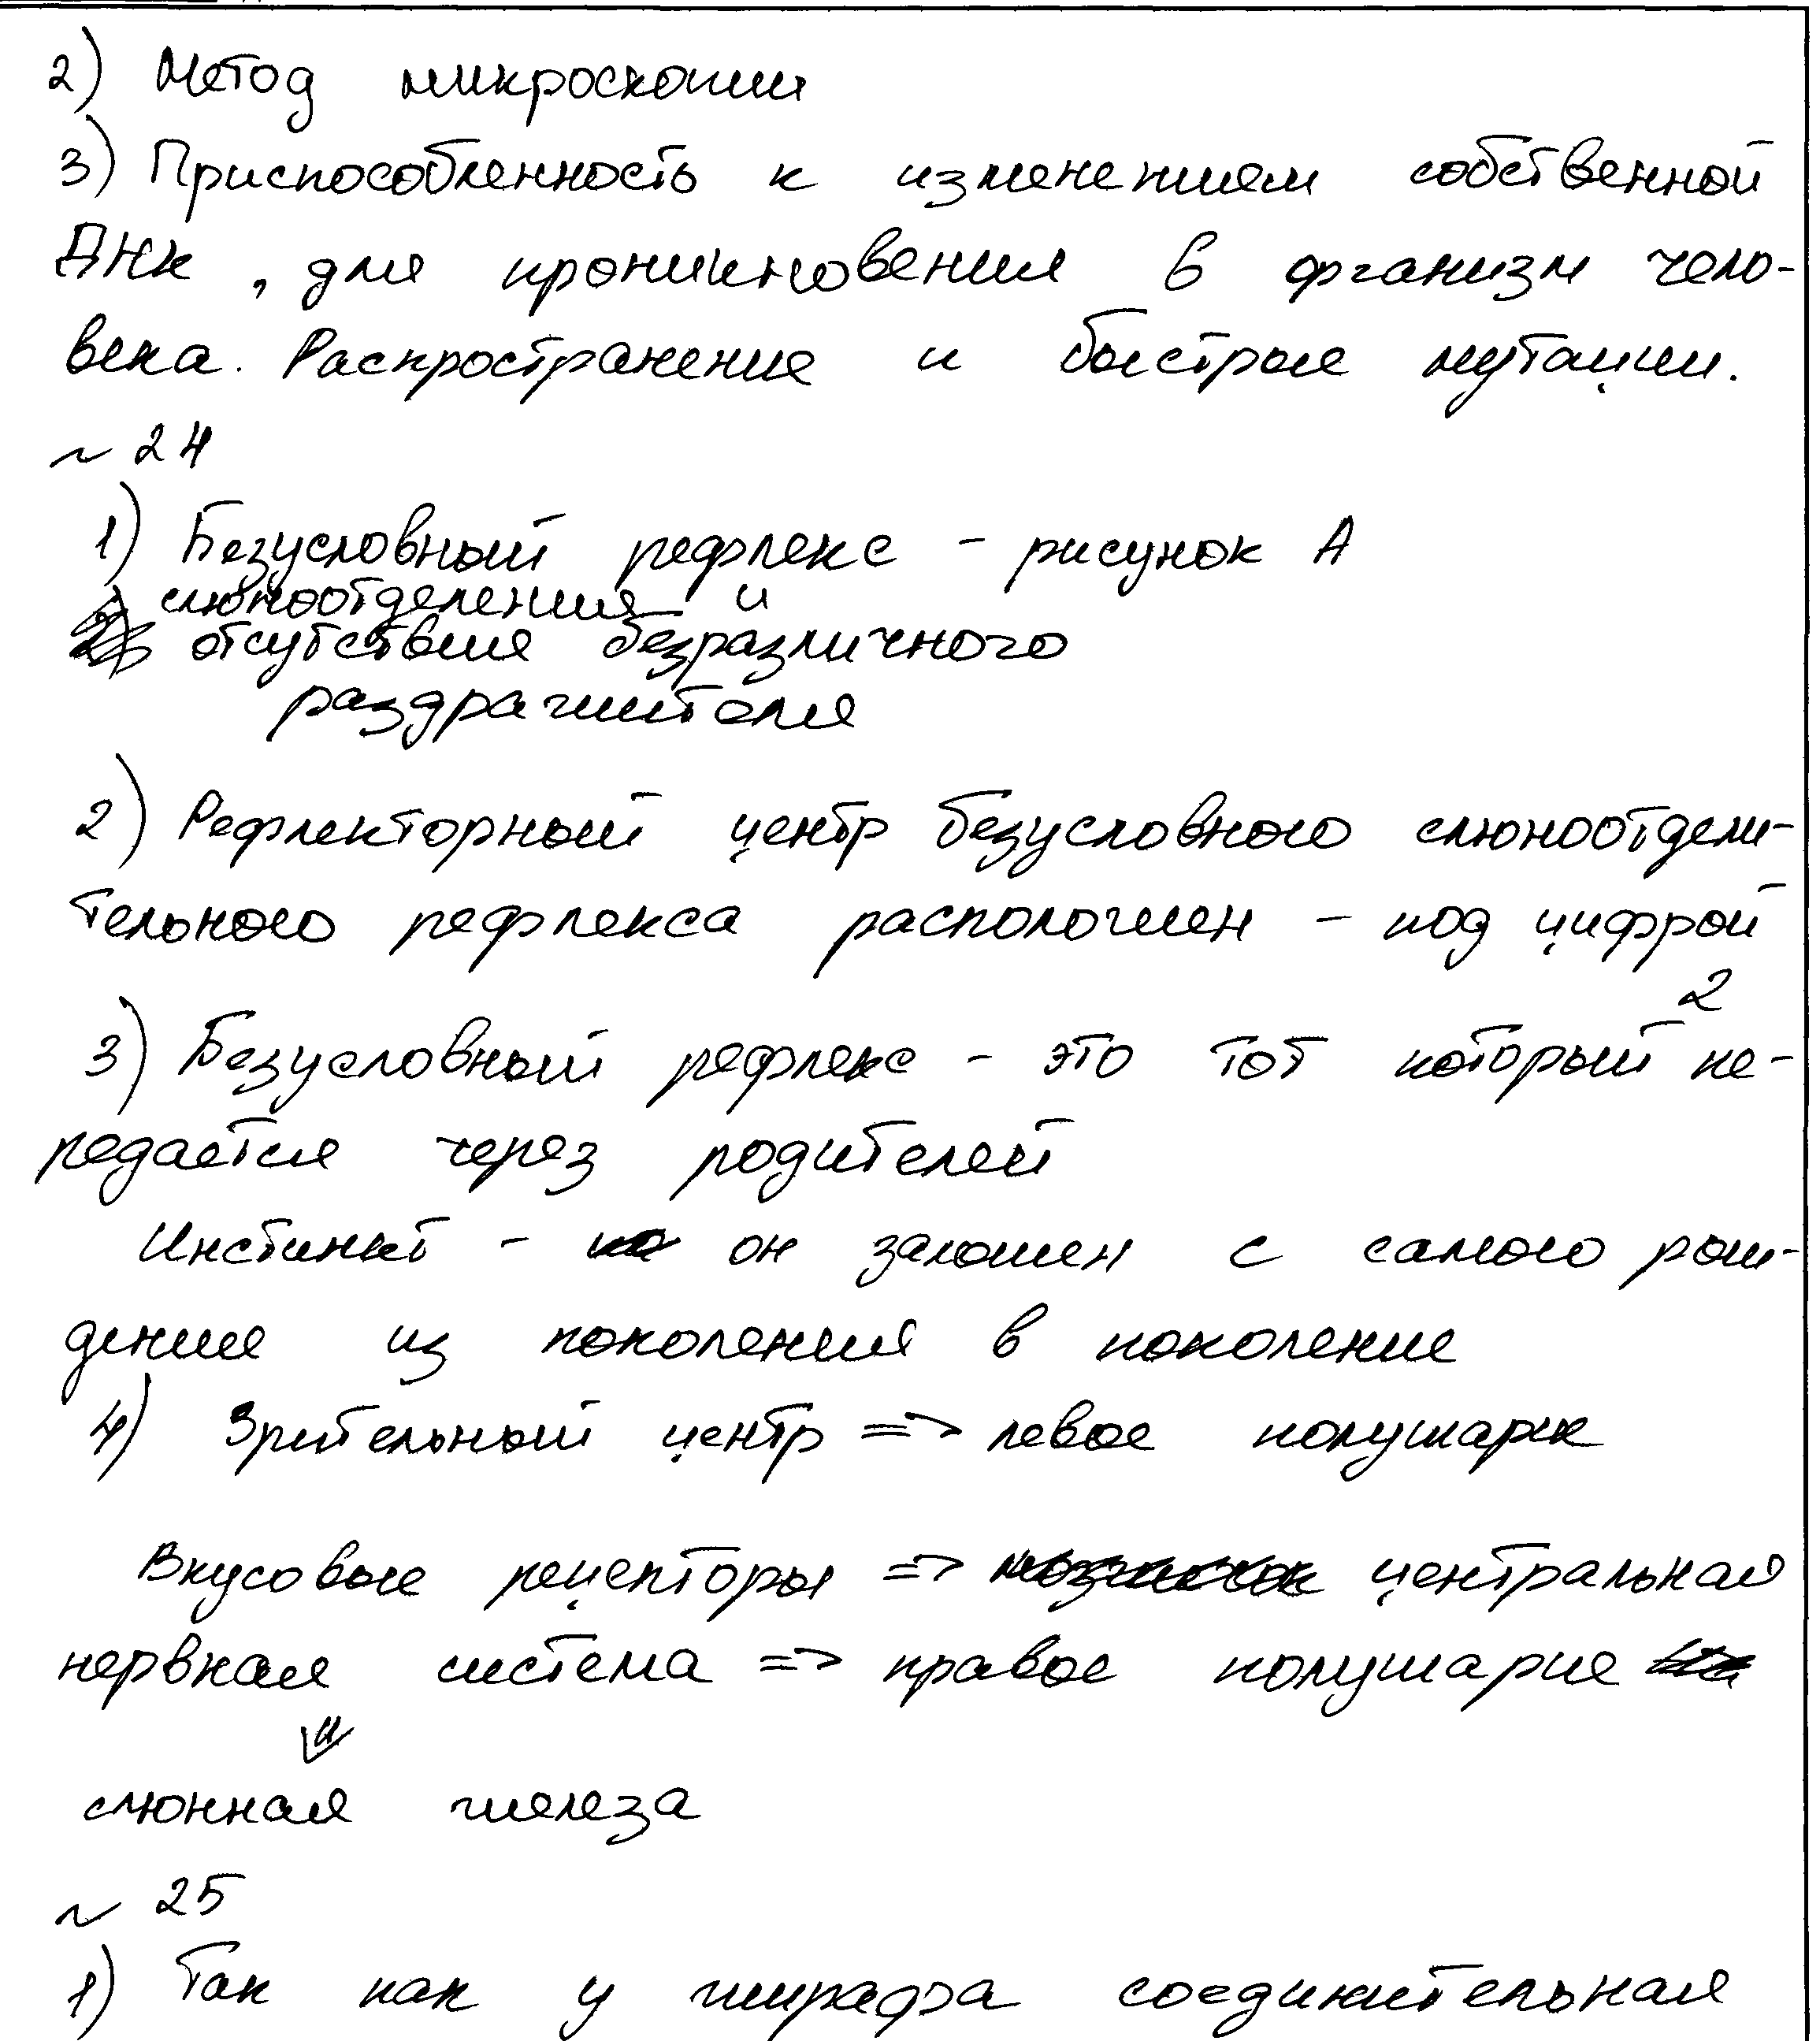 2) Метод микроскопии
3) Приспособленность к изменениям собственной
ДНК, для проникновения в организм чело-
века. Распространение и быстрые мутации.
~ 24
1) Безусловный рефлекс - рисунок А
слюноотделения и
отсутствия безразличного
раздражителя
2) Рефлекторный центр безусловного слюноотдели-
тельного рефлекса расположен - под цифрой
2
3) Безусловный рефлекс - это тот который пе-
редаётся через родителей
Инстинкт - он заложен с самого рож-
дения из поколения в поколение
4) Зрительный центр => левое полушарие
Вкусовые рецепторы => центральная
нервная система => правое полушарие
слюнная железа
~ 25
1) Так как у жирафа соединительная